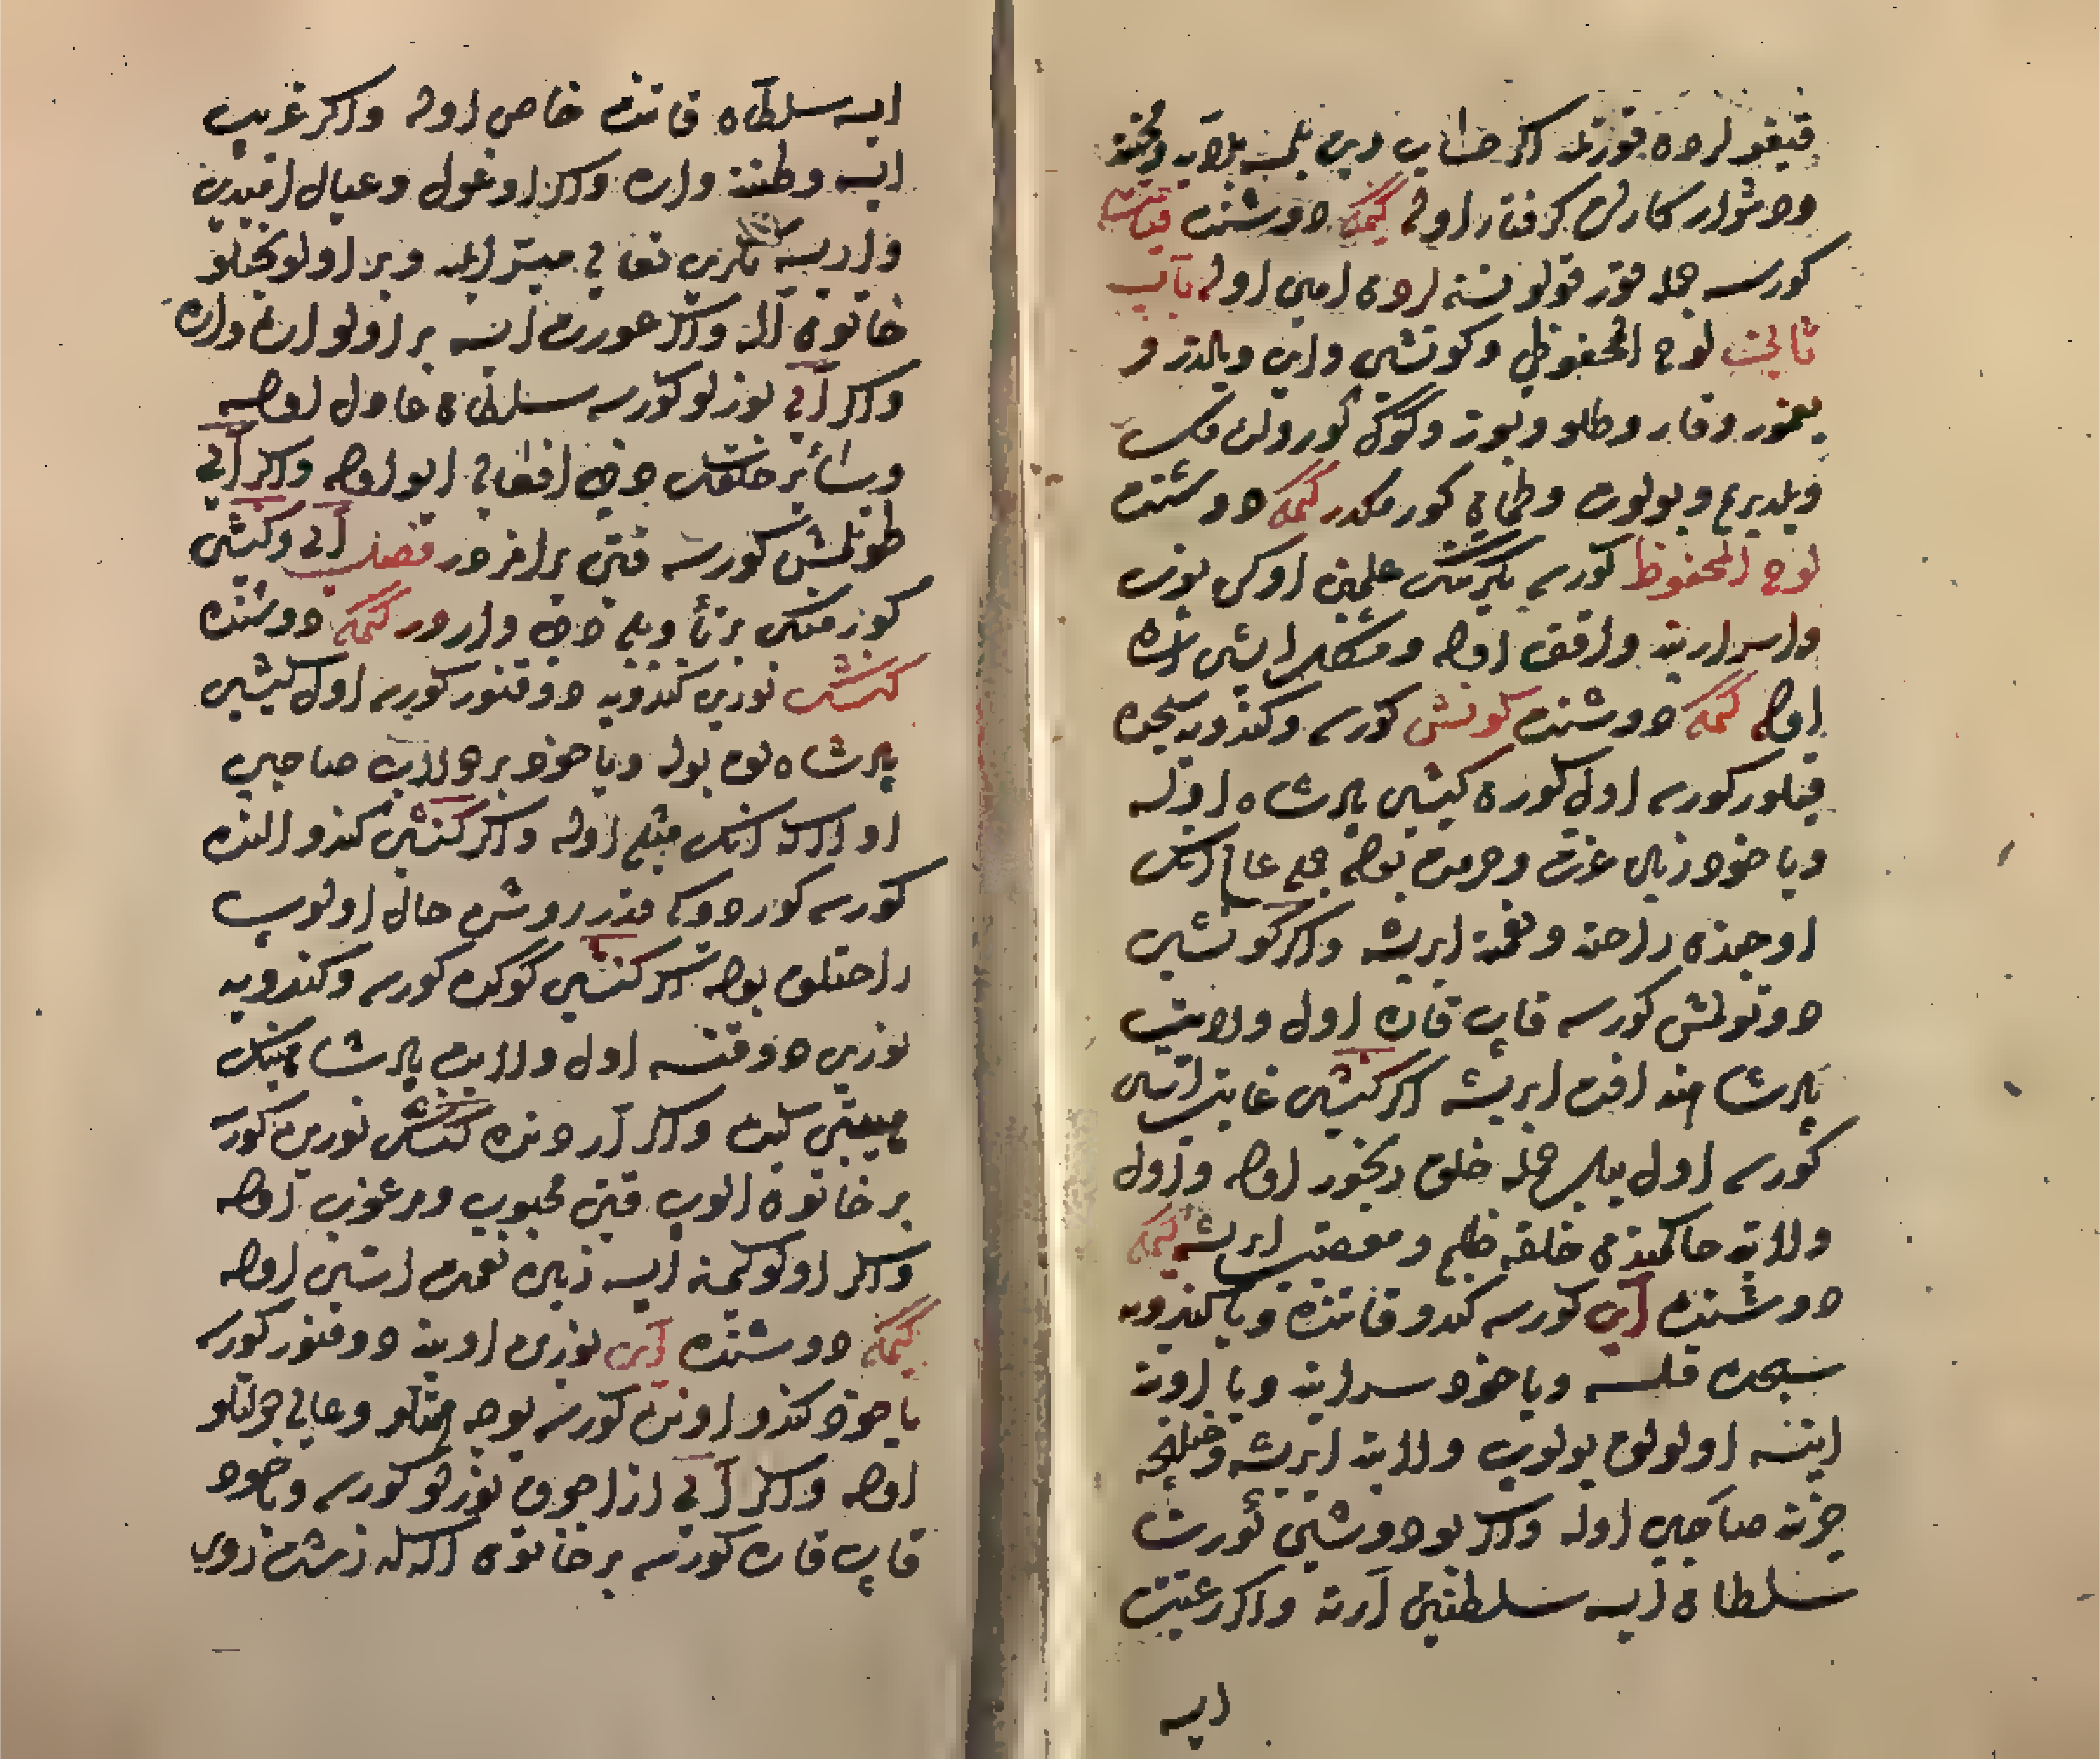 قیغولردن قورتله اکر حساب دین بلمسه بلایه ومحنته
ودشوار کارلره کرفتار اوله کیمکه دوشنده قیامت
کورسه جمله قورقولو نسنه لردن امین اوله باب
ثالث لوح المحفوظی وکونشی وایی ویلدزلر
یغمور وقار وطلو وبوز وکوک کورولدی
ویلدیرم وبولوت وطمان کورمکدر کیمکه دوشنده
لوح المحفوظ کورسه تکرینک علمین اوکی یوزه
واسرارینه واقف اوله ومشکل ایشی اسان
اوله کیمکه دوشنده کونشی کورسه وکندویه سجده
قیلور کورسه اول کورن کیشی پادشاه اولسه
ویا خود زیاده عزت وحرمت بوله جمیع عالم انک
اوجنده راحته ونعمته ایریشه واکر کونشی
دوتولمش کورسه قاپ قاره اول ولایتده
پادشاهنه افت ایریشه اکر کنشی غایت اسی
کورسه اول ییلده جمله خلق رنجور اوله واول
ولایته حاکمیندن خلقه ظلم ومعصیت ایریشه کیمکه
دوشنده آیی کورسه کندو قاتنده ویا کندویه
سجده قلسه ویا خود سراینه ویا اوینه
اینسه اولولق بولوب ولایته ایریشه وخیلیجه
خزینه صاحبی اوله واکر بو دوشی کورن
سلطان ایسه سلطنتی آرته واکر رعیت
ایسه
ایسه سلطان قاتنده خاص اوله واکر غریب
ایسه وطننه واره واکر اوغول وعیال امیدن
واریسه تکری تعالی میسر ایله وبر اولو بختلو
خاتون آله واکر عورت ایسه بر اولو اره واره
واکر آیی نوزلو کورسه سلطان عادل اوله
وسائر خلقک دخی افعالی ایو اوله واکر آیی
طوتلمش کورسه قتی یرامزدر فصل آیی وکنشی
کورمنک بر تأویلی دخی واردر کیمکه دوشنده
کنشک نورین کندویه دوقنور کورسه اول کیشی
پادشاهلق بوله ویا خود بر ولایت صاحبی
اولاکه انک مثلی اوله واکر کنشی کندو النده
کورسه کوردوکی قدر روشن حال اولوب
راحتلق بوله اکر کنشی کوکده کورسه وکندویه
نوری دوقنسه اول ولایت پادشاهینک
هیبتی کیده واکر آردنده کنشک نورین کورسه
بر خاتون الوب قتی محبوب ومرغوب اوله
واکر اولوکیمسه ایسه زیاده نعمت اسی اوله
کیمکه دوشنده آیی نورین اوینه دوقنور کورسه
یا خود کندو اونده کورسه یوجه همتلو وعالی دولتلو
اوله واکر آیی ازاجق نورلو کورسه ویا خود
قاپ قاره کورسه بر خاتون اله که زشت روی